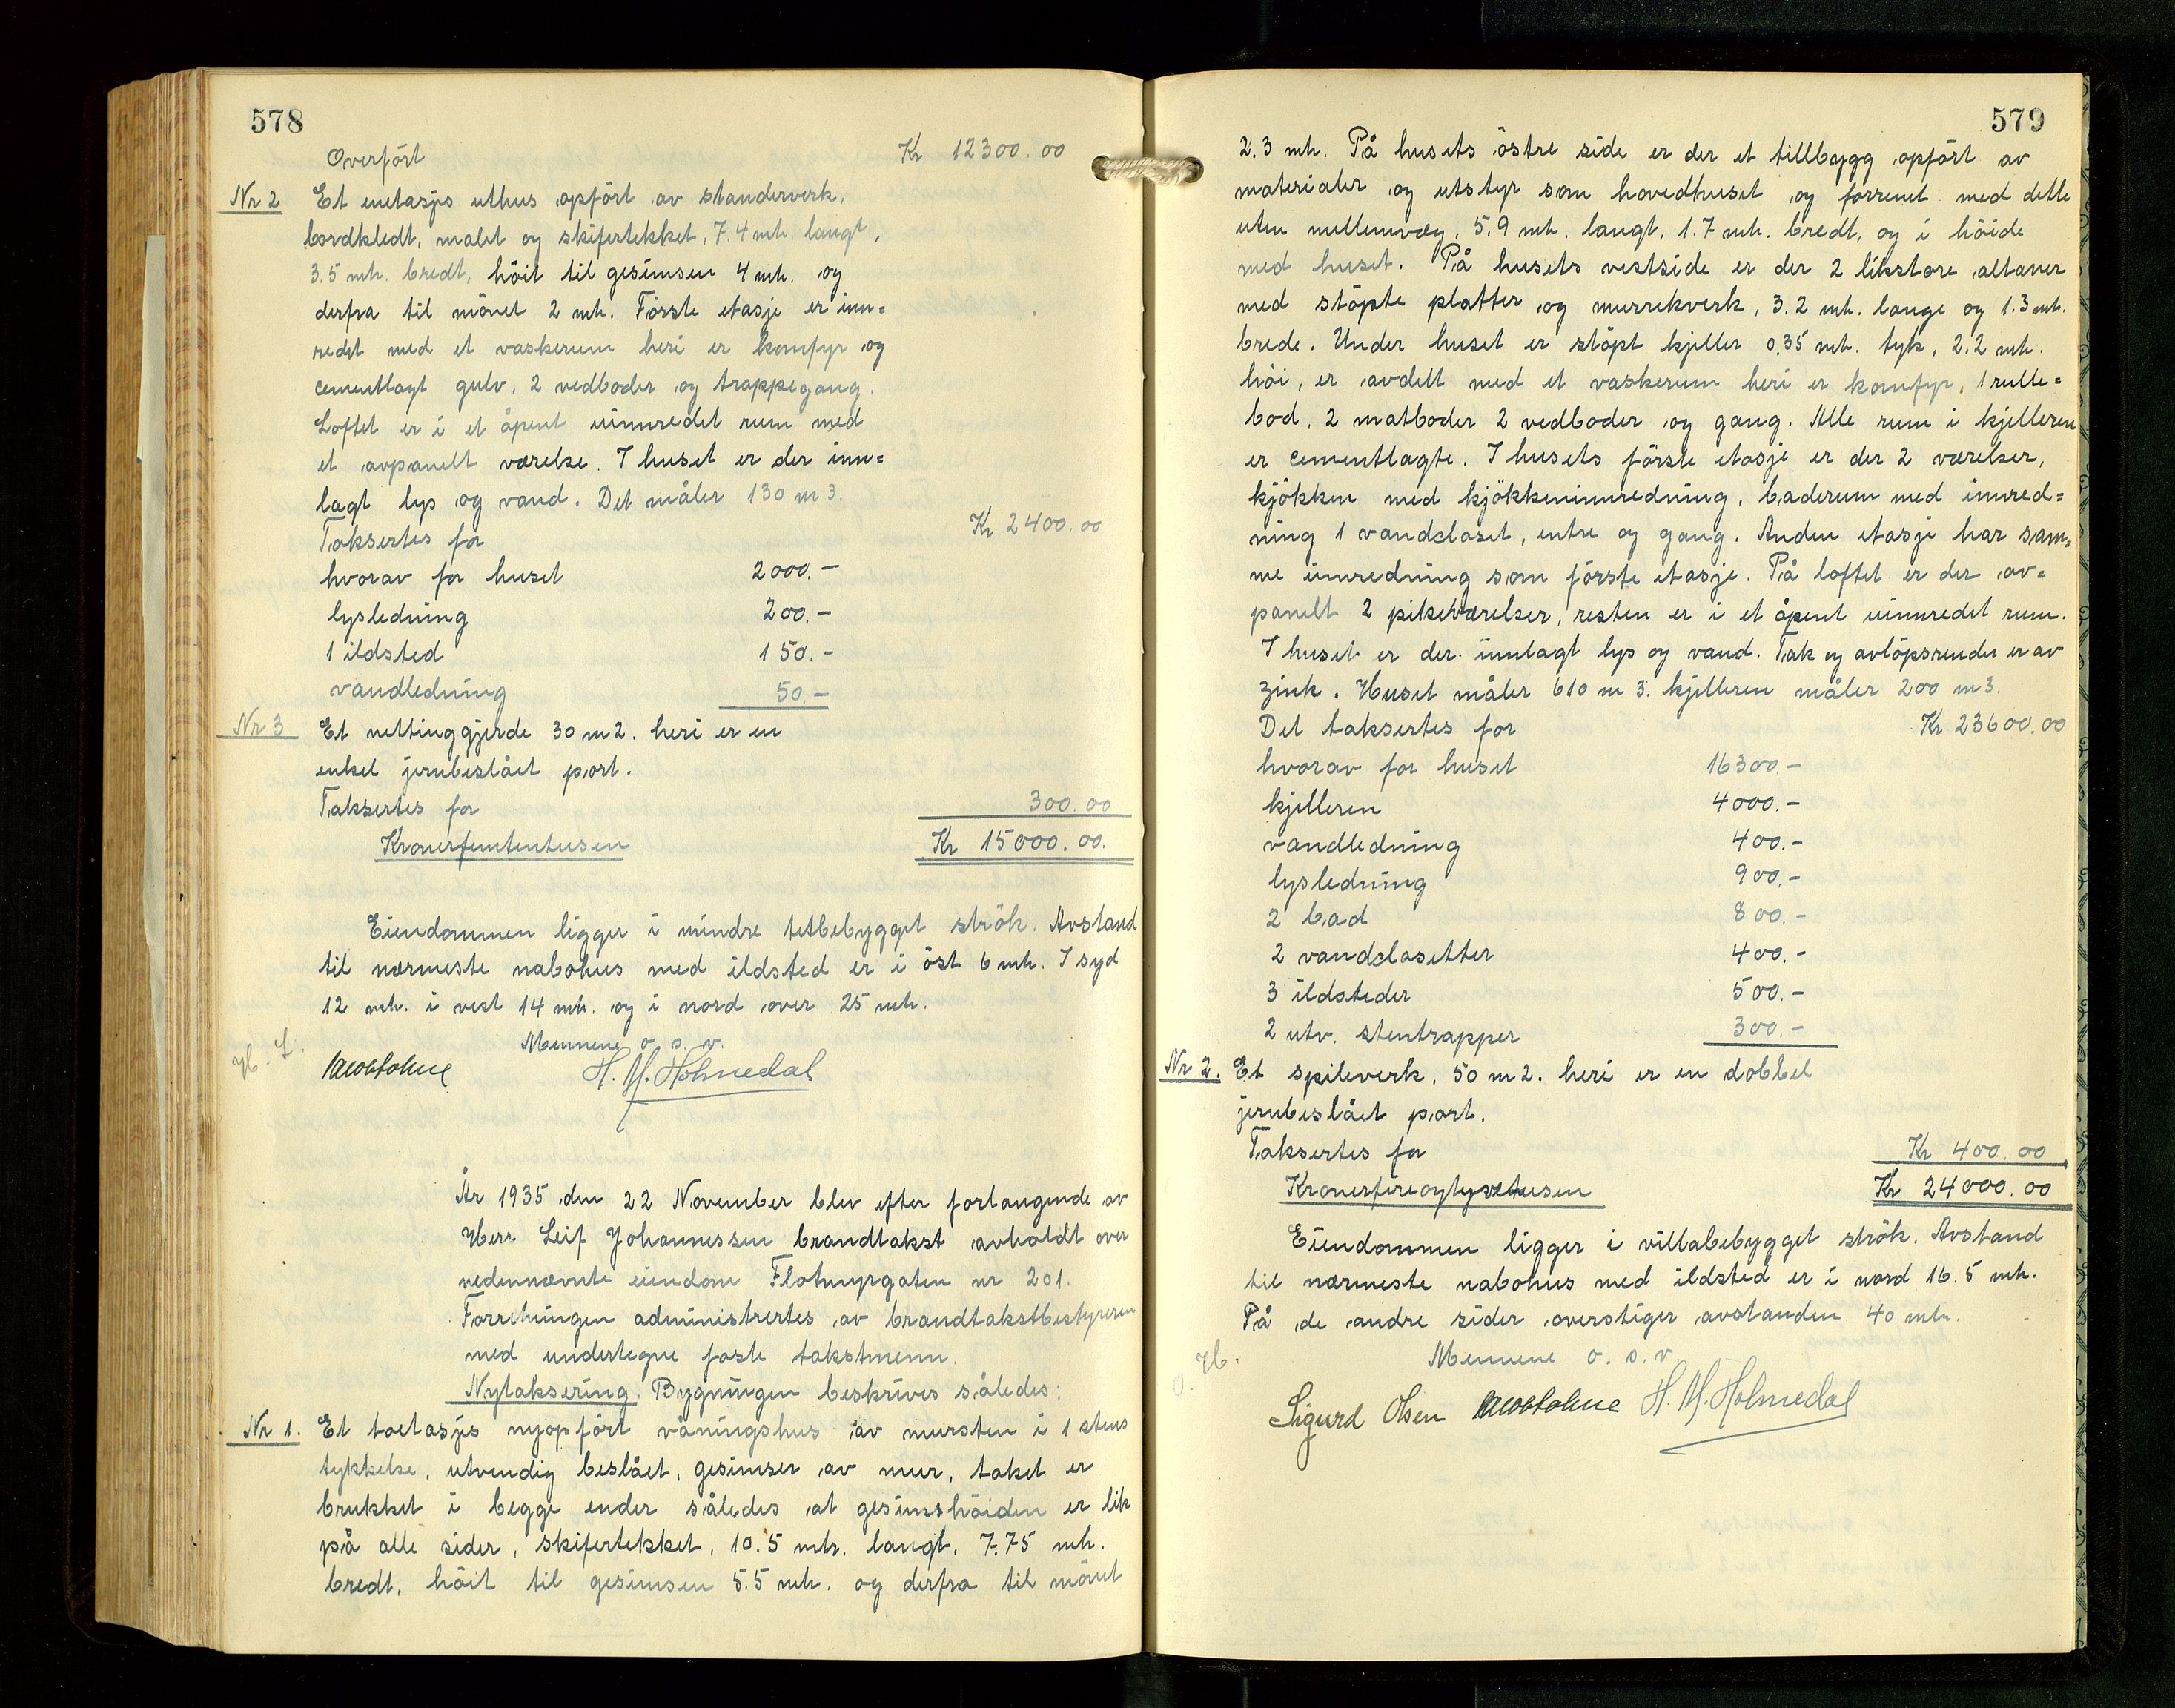 578
Overført Kr 12300.00
Nr 2 Et enetasjes uthus opført av standerverk,
bordkledt, malet og skifertekket, 7.4 mtr. langt,
3.5 mtr. bredt, höit til gesimsen 4 mtr. og
derfra til mönet 2 mtr. Förste etasje er inn=
redt med et vaskerum heri er komfyr og
cementlagt gulv, 2 vedboder og trappegang.
Loftet er i et åpent uinnredet rum med
et avpanelt værelse. I huset er der inn=
lagt lys og vand. Det måler 130 m3.
Taksertes for Kr 2400.00
hvorav for huset 2000.-
lysledning 200.-
1 ildsted 150.-
vandledning 50.-
Nr 3 Et nettinggjerde 30 m2. heri er en
enkel jernbeslået port.
Taksertes for 300.00
Kronerfemtentusen Kr 15000.00.
Eiendommen ligger i mindre tetbebygget strök. Avstand
til nærmeste nabohus med ildsted er i öst 6 mtr. I syd
12 mtr. i vest 14 mtr. og i nord over 25 mtr.
Mennene o. s. v.
H. M. Holmedal
År 1935 den 22 November blev efter forlangende av
Herr Leif Johannessen brandtakst avholdt over
nedennævnte eiendom Flotmyrgaten nr 201.
Forretningen administrertes av brandtakstbestyreren
med undertegne faste takstmenn.
Nytaksering. Bygningen beskrives således:
Nr 1. Et toetasjes nyopfört våningshus av mursten i 1 stens
tykkelse, utvendig beslået, gesimser av mur, taket er
brukket i begge ender således at gesimshöiden er lik
på alle sider, skifertekket, 10.5 mtr. langt, 7.75 mtr.
bredt, höit til gesimsen 5.5 mtr. og derfra til mönet
579
2.3 mtr. På husets östre side er der et tillbygg opfört av
materialer og utstyr som hovedhuset og forrenet med dette
uten mellemvæg, 5.9 mtr. langt, 1.7 mtr. bredt, og i höide
med huset. På husets vestside er der 2 likstore altaner
med stöpte platter og murrekverk, 3.2 mtr. lange og 1.3 mtr.
brede. Under huset er stöpt kjeller 0.35 mtr. tyk, 2.2 mtr.
höi, er avdelt med et vaskerum heri er komfyr, 1 rulle=
bod, 2 matboder 2 vedboder og gang. Alle rum i kjelleren
er cementlagte. I husets förste etasje er der 2 værelser,
kjökken med kjökkeninnredning, baderum med innred=
ning 1 vandcloset, entre og gang. Anden etasje har sam=
me innredning som förste etasje. På loftet er der av=
panelt 2 pikeværelser, resten er i et åpent uinnredet rum.
I huset er der innlagt lys og vand. Tak og avlöpsrender er av
zink. Huset måler 610 m 3. kjelleren måler 200 m3.
Det taksertes for Kr 23600.00
hvorav for huset 16300.-
kjelleren 4000.-
vandledning 400.-
lysledning 900.-
2 bad 800.-
2 vandclosetter 400.-
3 ildsteder 500.-
2 utv. stentrapper 300.-
Nr 2. Et spileverk, 50 m2. heri er en dobbel
jernbeslået port.
Taksertes for Kr 400.00
Kronerfireogtyvetusen Kr 24000.00
Eiendommen ligger i villabebygget strök. Avstand
til nærmeste nabohus med ildsted er i nord 16.5 mtr.
På de andre sider overstiger avstanden 40 mtr.
Mennene o. s. v.
Sigurd Olsen H. M. Holmedal